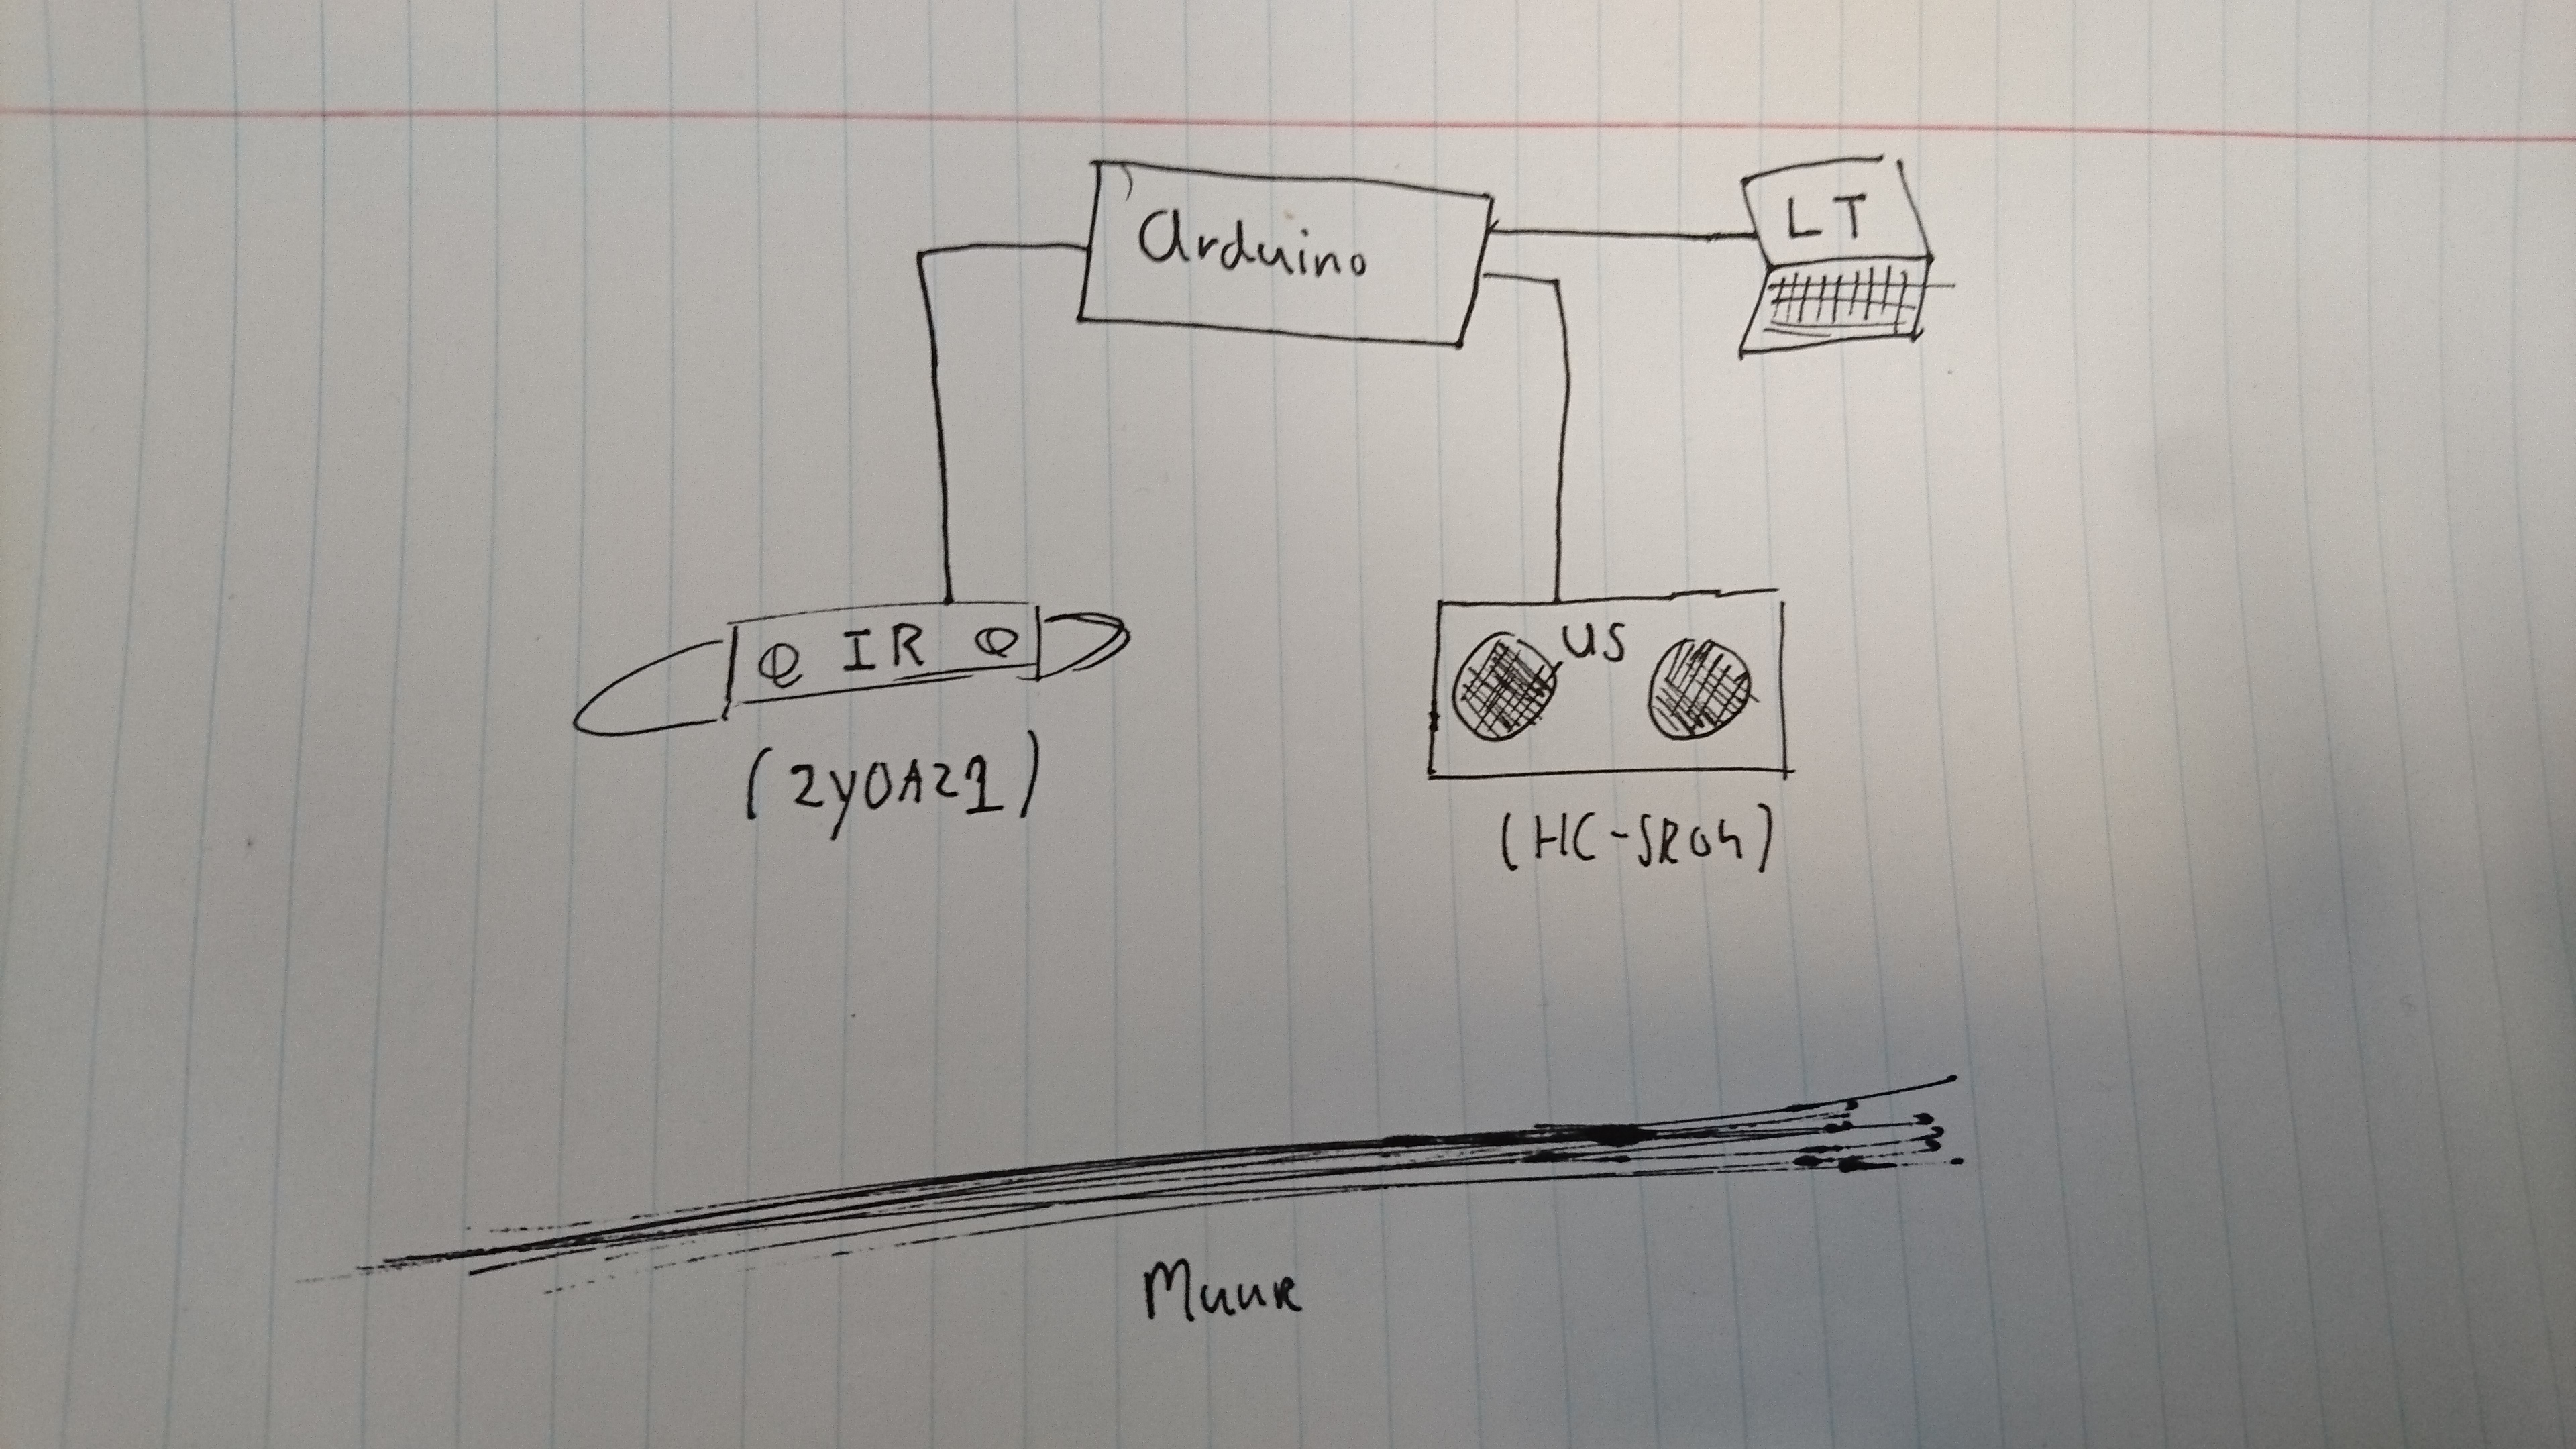 arduino
LT
IR
US
(2Y0A21)
(HC-SR04)
Muur